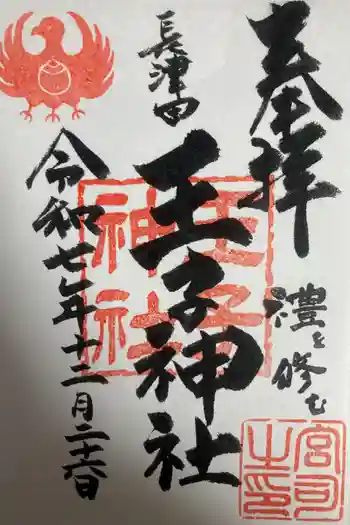 奉拝
禮を修む
長津田
王子神社
令和七年十二月二十六日
王子
神社
宮司
之印